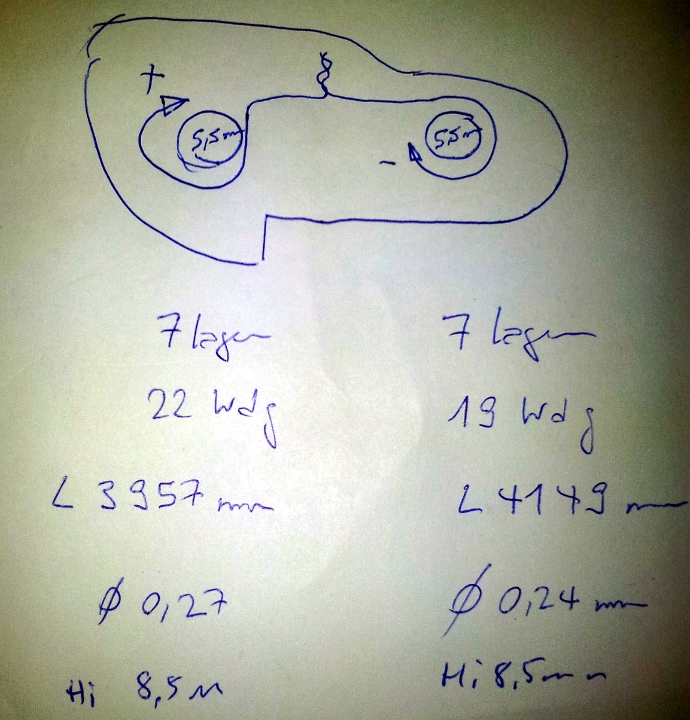 +
5,5m
5,5m
-
7 lagen 7 lagen
22 Wdg 19 Wdg
L 3957 mm L 4149 mm
Ø 0,27 Ø 0,24 mm
Hi 8,5 m Hi 8,5mm